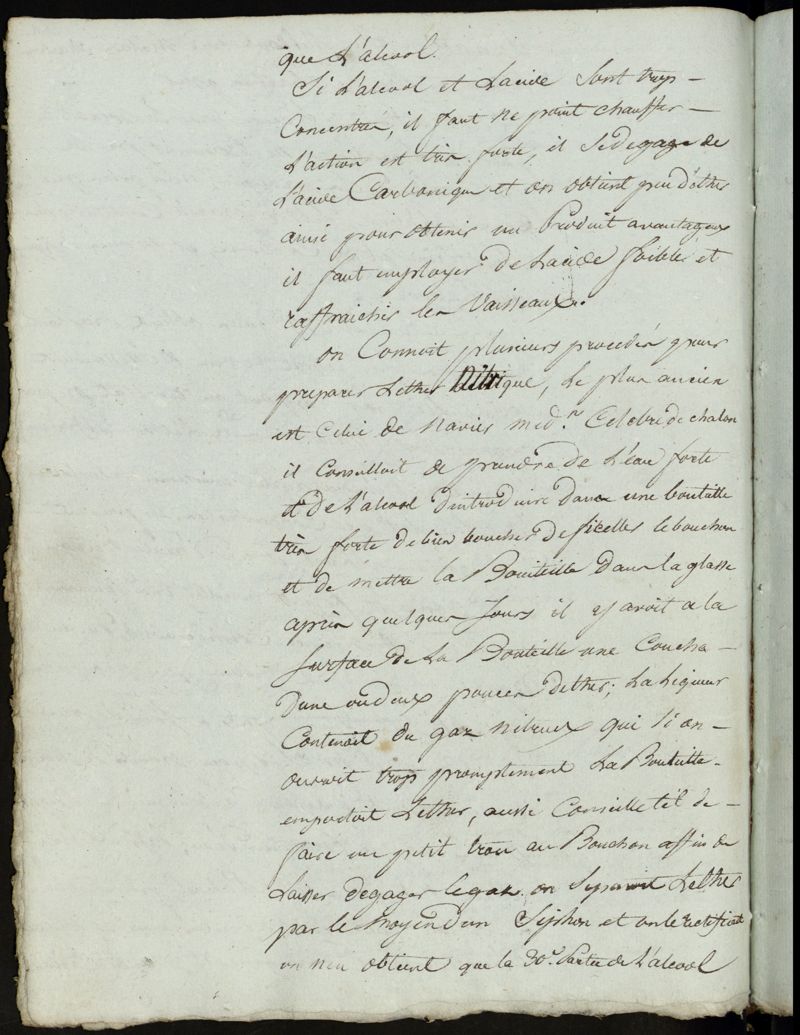 que L'alcool.
Si L'alcool et Lacide Sont trop –
Concentrés, il faut ne point chauffer –
L'action est très forte, il Se degage de
L'acide Carbonique et on obtient peu d'ether
ainsi pour obtenir un Produit avantageux
il faut employer de Lacide foible et
raffraichir les Vaisseaux.
on Connoit plusieurs procedés pour
preparer Lether Nitrique, Le plus ancien
est Celui de navier med.n Celebre de chalon
il Conseilloit de prendre de L'eau forte
et de L'alcool d'introduire dans une bouteille
très forte de bien boucher de ficelles le bouchon
et de mettre la Bouteille dans la glasse
après quelques Jours il y avoit a la
Surface de La Bouteille une Couche –
Dune ou deux pouces dether; La Liqueur
Contenoit du gaz nitreux qui Si on –
ouvroit trop promptement La Bouteille –
emportoit Lether, aussi Conseille til de –
faire un petit trou au Bouchon affin de
Laisser degager le gaz. on Separoit Lether
par le moyen d'un Syphon et on le rectifioit
on n'en obtient que la 30.e Partie de L'alcool